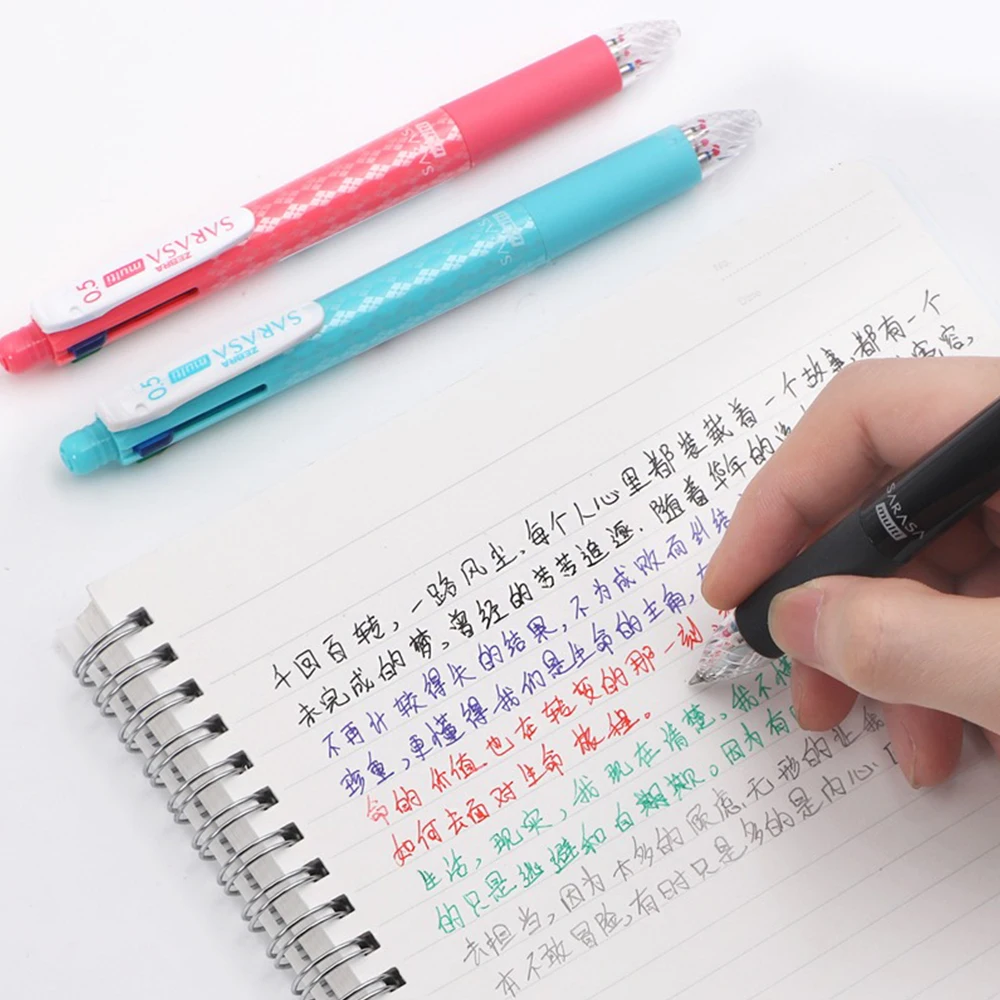 SARASA
multi
SARASA
ZEBRA
multi
0.5
SARASA
multi
SARASA
ZEBRA
multi
0.5
No.
Date
SARASA
multi
千回百转，一路风尘，每个人心里都装载着一个故事，都有一个
未完成的梦，曾经的苦苦追逐，随着华年的
不再计较得失的结果，不为成败而纠结
珍重，更懂得我们是生命的主角，
命的价值也在转变的那一刻
如何去面对生命旅程。
生活，现实，我现在清楚，我不
的只是逃避和自欺欺。因为有
去担当，因为太多的顾虑，无形的
有不敢冒险，有时只是多的是内心